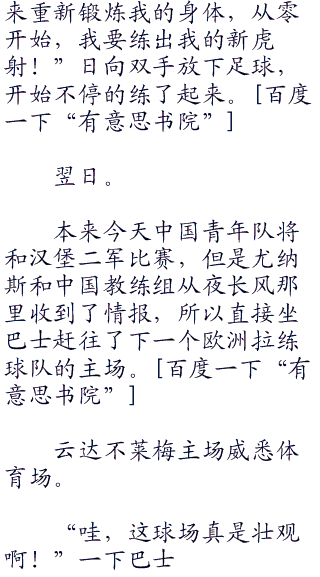 来重新锻炼我的身体，从零
开始，我要练出我的新虎
射！”日向双手放下足球，
开始不停的练了起来。[百度
一下“有意思书院”]
翌日。
本来今天中国青年队将
和汉堡二军比赛，但是尤纳
斯和中国教练组从夜长风那
里收到了情报，所以直接坐
巴士赶往了下一个欧洲拉练
球队的主场。[百度一下“有
意思书院”]
云达不莱梅主场威悉体
育场。
“哇，这球场真是壮观
啊！”一下巴士